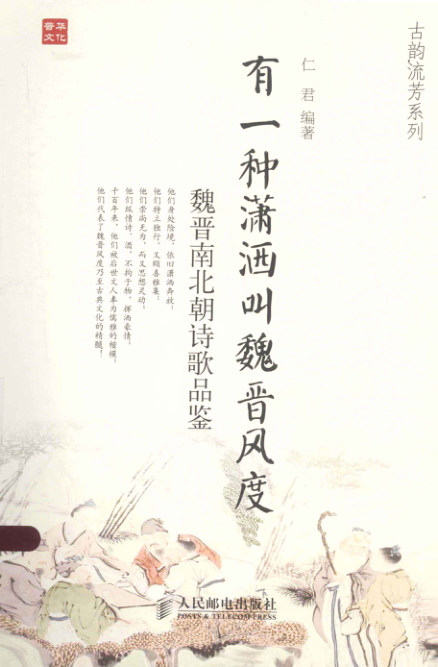 古韵流芳系列
仁君 编著
有一种潇洒叫魏晋风度
魏晋南北朝诗歌品鉴
他们身处险境，依旧潇洒奔放；
他们特立独行，又颇喜雅集；
他们崇尚无为，而又思想灵动；
他们纵情诗、酒，不拘于物，挥洒豪情；
千百年来，他们被后世文人奉为儒雅的楷模；
他们代表了魏晋风度乃至古典文化的精髓！
普华
文化
人民邮电出版社
POSTS & TELECOM PRESS